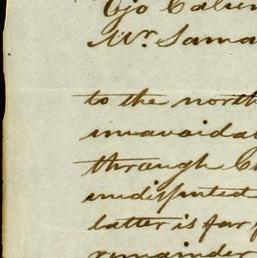 Mr. Sam
to the north
unavoida
through C
undisputed
latter is far f
remainder